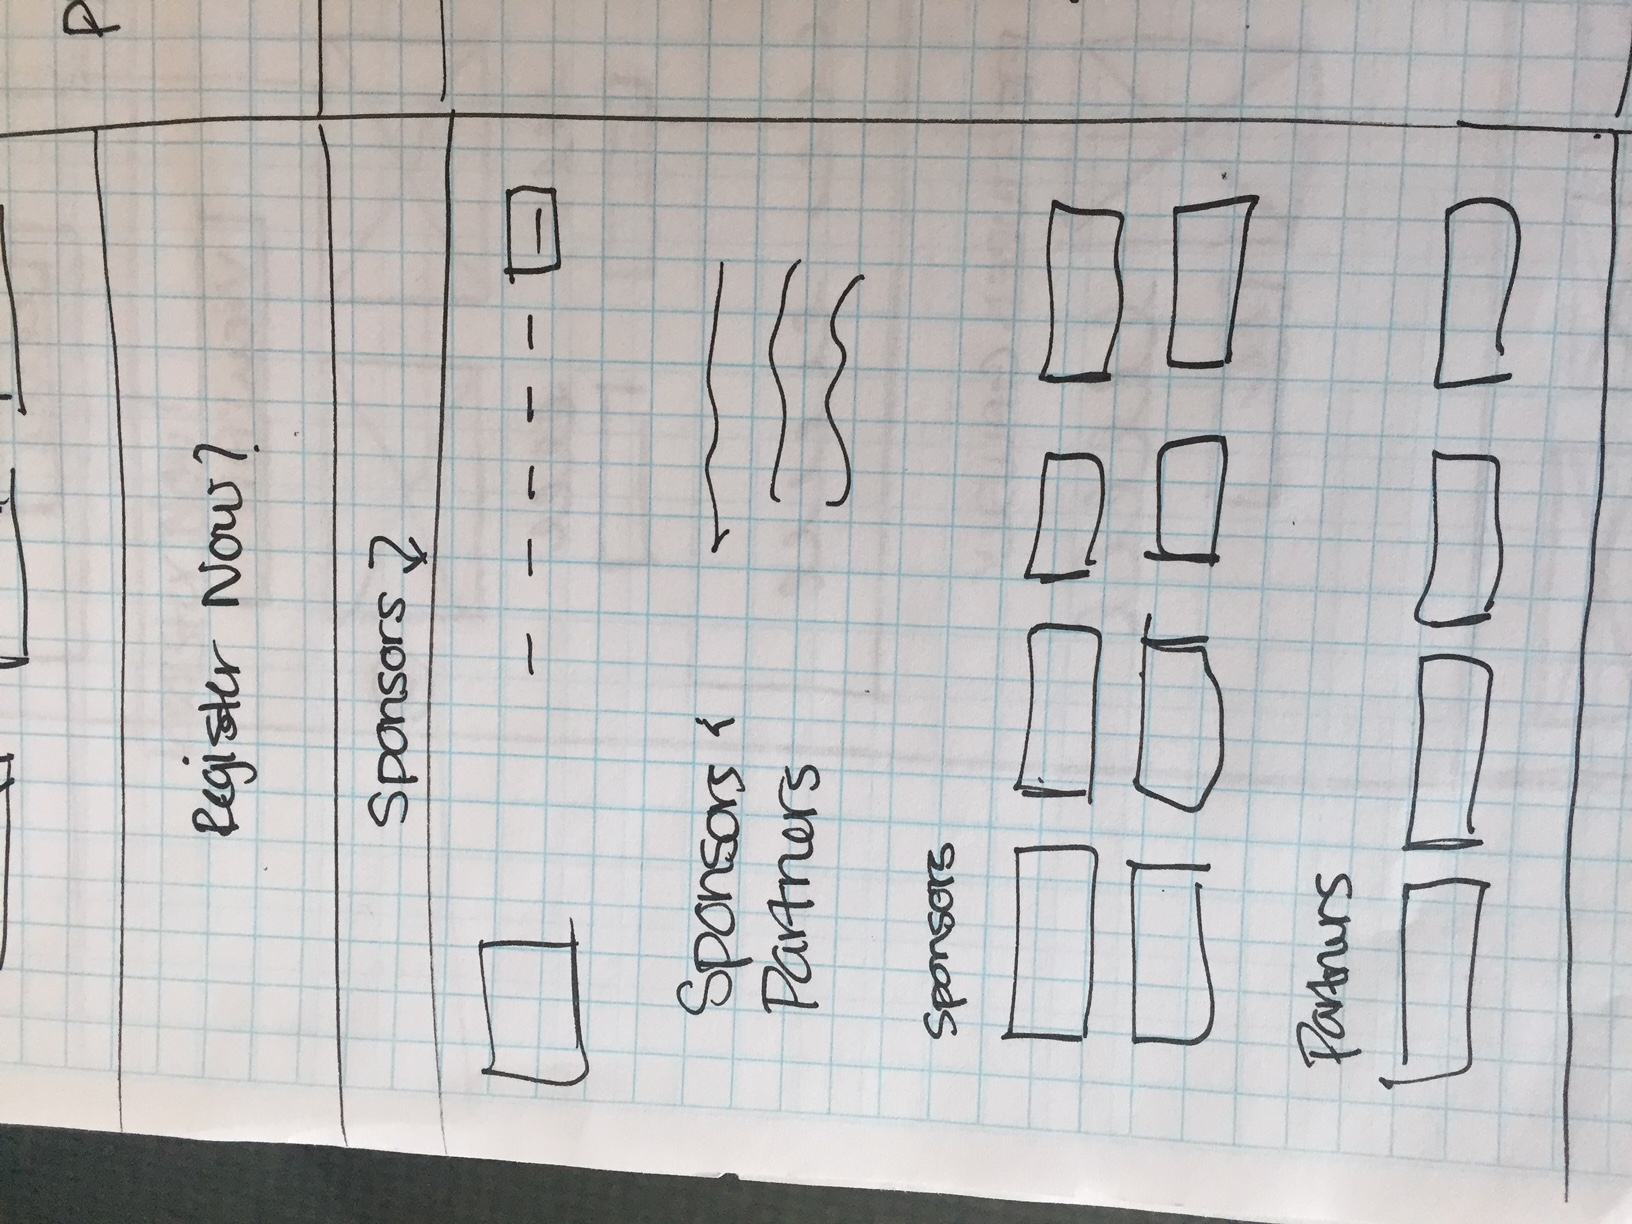 P
Register Now?
Sponsors
Sponsors &
Partners
Sponsors
Partners